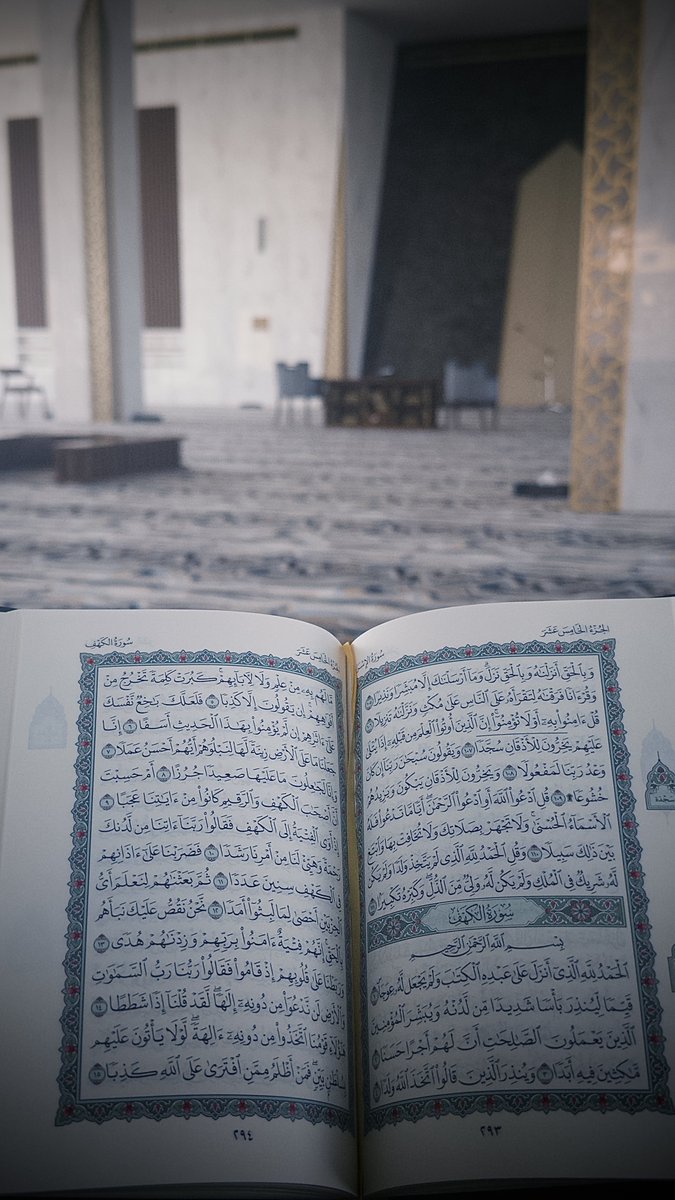 الجُزْءُ الخَامِسَ عَشَرَ
سُورَةُ الإِسْرَاءِ
وَبِٱلْحَقِّ أَنزَلْنَٰهُ وَبِٱلْحَقِّ نَزَلَۗ وَمَآ أَرْسَلْنَٰكَ إِلَّا مُبَشِّرًا وَنَذِيرًا ١٠٥
وَقُرْءَانًا فَرَقْنَٰهُ لِتَقْرَأَهُۥ عَلَى ٱلنَّاسِ عَلَىٰ مُكْثٍ وَنَزَّلْنَٰهُ تَنزِيلًا ١٠٦
قُلْ ءَامِنُوا۟ بِهِۦٓ أَوْ لَا تُؤْمِنُوٓا۟ۚ إِنَّ ٱلَّذِينَ أُوتُوا۟ ٱلْعِلْمَ مِن قَبْلِهِۦٓ إِذَا يُتْلَىٰ
عَلَيْهِمْ يَخِرُّونَ لِلْأَذْقَانِ سُجَّدًا ١٠٧ وَيَقُولُونَ سُبْحَٰنَ رَبِّنَآ إِن كَانَ
وَعْدُ رَبِّنَا لَمَفْعُولًا ١٠٨ وَيَخِرُّونَ لِلْأَذْقَانِ يَبْكُونَ وَيَزِيدُهُمْ
خُشُوعًا۩ ١٠٩ قُلِ ٱدْعُوا۟ ٱللَّهَ أَوِ ٱدْعُوا۟ ٱلرَّحْمَٰنَۖ أَيًّا مَّا تَدْعُوا۟ فَلَهُ
ٱلْأَسْمَآءُ ٱلْحُسْنَىٰۚ وَلَا تَجْهَرْ بِصَلَاتِكَ وَلَا تُخَافِتْ بِهَا وَٱبْتَغِ
بَيْنَ ذَٰلِكَ سَبِيلًا ١١٠ وَقُلِ ٱلْحَمْدُ لِلَّهِ ٱلَّذِى لَمْ يَتَّخِذْ وَلَدًا وَلَمْ يَكُن
لَّهُۥ شَرِيكٌ فِى ٱلْمُلْكِ وَلَمْ يَكُن لَّهُۥ وَلِىٌّ مِّنَ ٱلذُّلِّۖ وَكَبِّرْهُ تَكْبِيرًۢا ١١١
سُورَةُ الكَهْفِ
بِسْمِ ٱللَّهِ ٱلرَّحْمَٰنِ ٱلرَّحِيمِ
ٱلْحَمْدُ لِلَّهِ ٱلَّذِىٓ أَنزَلَ عَلَىٰ عَبْدِهِ ٱلْكِتَٰبَ وَلَمْ يَجْعَل لَّهُۥ عِوَجَاۜ ١
قَيِّمًا لِّيُنذِرَ بَأْسًا شَدِيدًا مِّن لَّدُنْهُ وَيُبَشِّرَ ٱلْمُؤْمِنِينَ
ٱلَّذِينَ يَعْمَلُونَ ٱلصَّٰلِحَٰتِ أَنَّ لَهُمْ أَجْرًا حَسَنًا ٢
مَّٰكِثِينَ فِيهِ أَبَدًا ٣ وَيُنذِرَ ٱلَّذِينَ قَالُوا۟ ٱتَّخَذَ ٱللَّهُ وَلَدًا ٤
٢٩٣
سَجْدَة
الجُزْءُ الخَامِسَ عَشَرَ
سُورَةُ الكَهْفِ
مَّا لَهُم بِهِۦ مِنْ عِلْمٍ وَلَا لِءَابَآئِهِمْۚ كَبُرَتْ كَلِمَةً تَخْرُجُ مِنْ
أَفْوَٰهِهِمْۚ إِن يَقُولُونَ إِلَّا كَذِبًا ٥ فَلَعَلَّكَ بَٰخِعٌ نَّفْسَكَ
عَلَىٰٓ ءَاثَٰرِهِمْ إِن لَّمْ يُؤْمِنُوا۟ بِهَٰذَا ٱلْحَدِيثِ أَسَفًا ٦ إِنَّا
جَعَلْنَا مَا عَلَى ٱلْأَرْضِ زِينَةً لَّهَا لِنَبْلُوَهُمْ أَيُّهُمْ أَحْسَنُ عَمَلًا ٧
وَإِنَّا لَجَٰعِلُونَ مَا عَلَيْهَا صَعِيدًا جُرُزًا ٨ أَمْ حَسِبْتَ
أَنَّ أَصْحَٰبَ ٱلْكَهْفِ وَٱلرَّقِيمِ كَانُوا۟ مِنْ ءَايَٰتِنَا عَجَبًا ٩
إِذْ أَوَى ٱلْفِتْيَةُ إِلَى ٱلْكَهْفِ فَقَالُوا۟ رَبَّنَآ ءَاتِنَا مِن لَّدُنكَ
رَحْمَةً وَهَيِّئْ لَنَا مِنْ أَمْرِنَا رَشَدًا ١٠ فَضَرَبْنَا عَلَىٰٓ ءَاذَانِهِمْ
فِى ٱلْكَهْفِ سِنِينَ عَدَدًا ١١ ثُمَّ بَعَثْنَٰهُمْ لِنَعْلَمَ أَىُّ
ٱلْحِزْبَيْنِ أَحْصَىٰ لِمَا لَبِثُوٓا۟ أَمَدًا ١٢ نَّحْنُ نَقُصُّ عَلَيْكَ نَبَأَهُم
بِٱلْحَقِّۚ إِنَّهُمْ فِتْيَةٌ ءَامَنُوا۟ بِرَبِّهِمْ وَزِدْنَٰهُمْ هُدًى ١٣
وَرَبَطْنَا عَلَىٰ قُلُوبِهِمْ إِذْ قَامُوا۟ فَقَالُوا۟ رَبُّنَا رَبُّ ٱلسَّمَٰوَٰتِ
وَٱلْأَرْضِ لَن نَّدْعُوَا۟ مِن دُونِهِۦٓ إِلَٰهًاۖ لَّقَدْ قُلْنَآ إِذًا شَطَطًا ١٤
هَٰٓؤُلَآءِ قَوْمُنَا ٱتَّخَذُوا۟ مِن دُونِهِۦٓ ءَالِهَةًۖ لَّوْلَا يَأْتُونَ عَلَيْهِم
بِسُلْطَٰنٍۭ بَيِّنٍۖ فَمَنْ أَظْلَمُ مِمَّنِ ٱفْتَرَىٰ عَلَى ٱللَّهِ كَذِبًا ١٥
٢٩٤